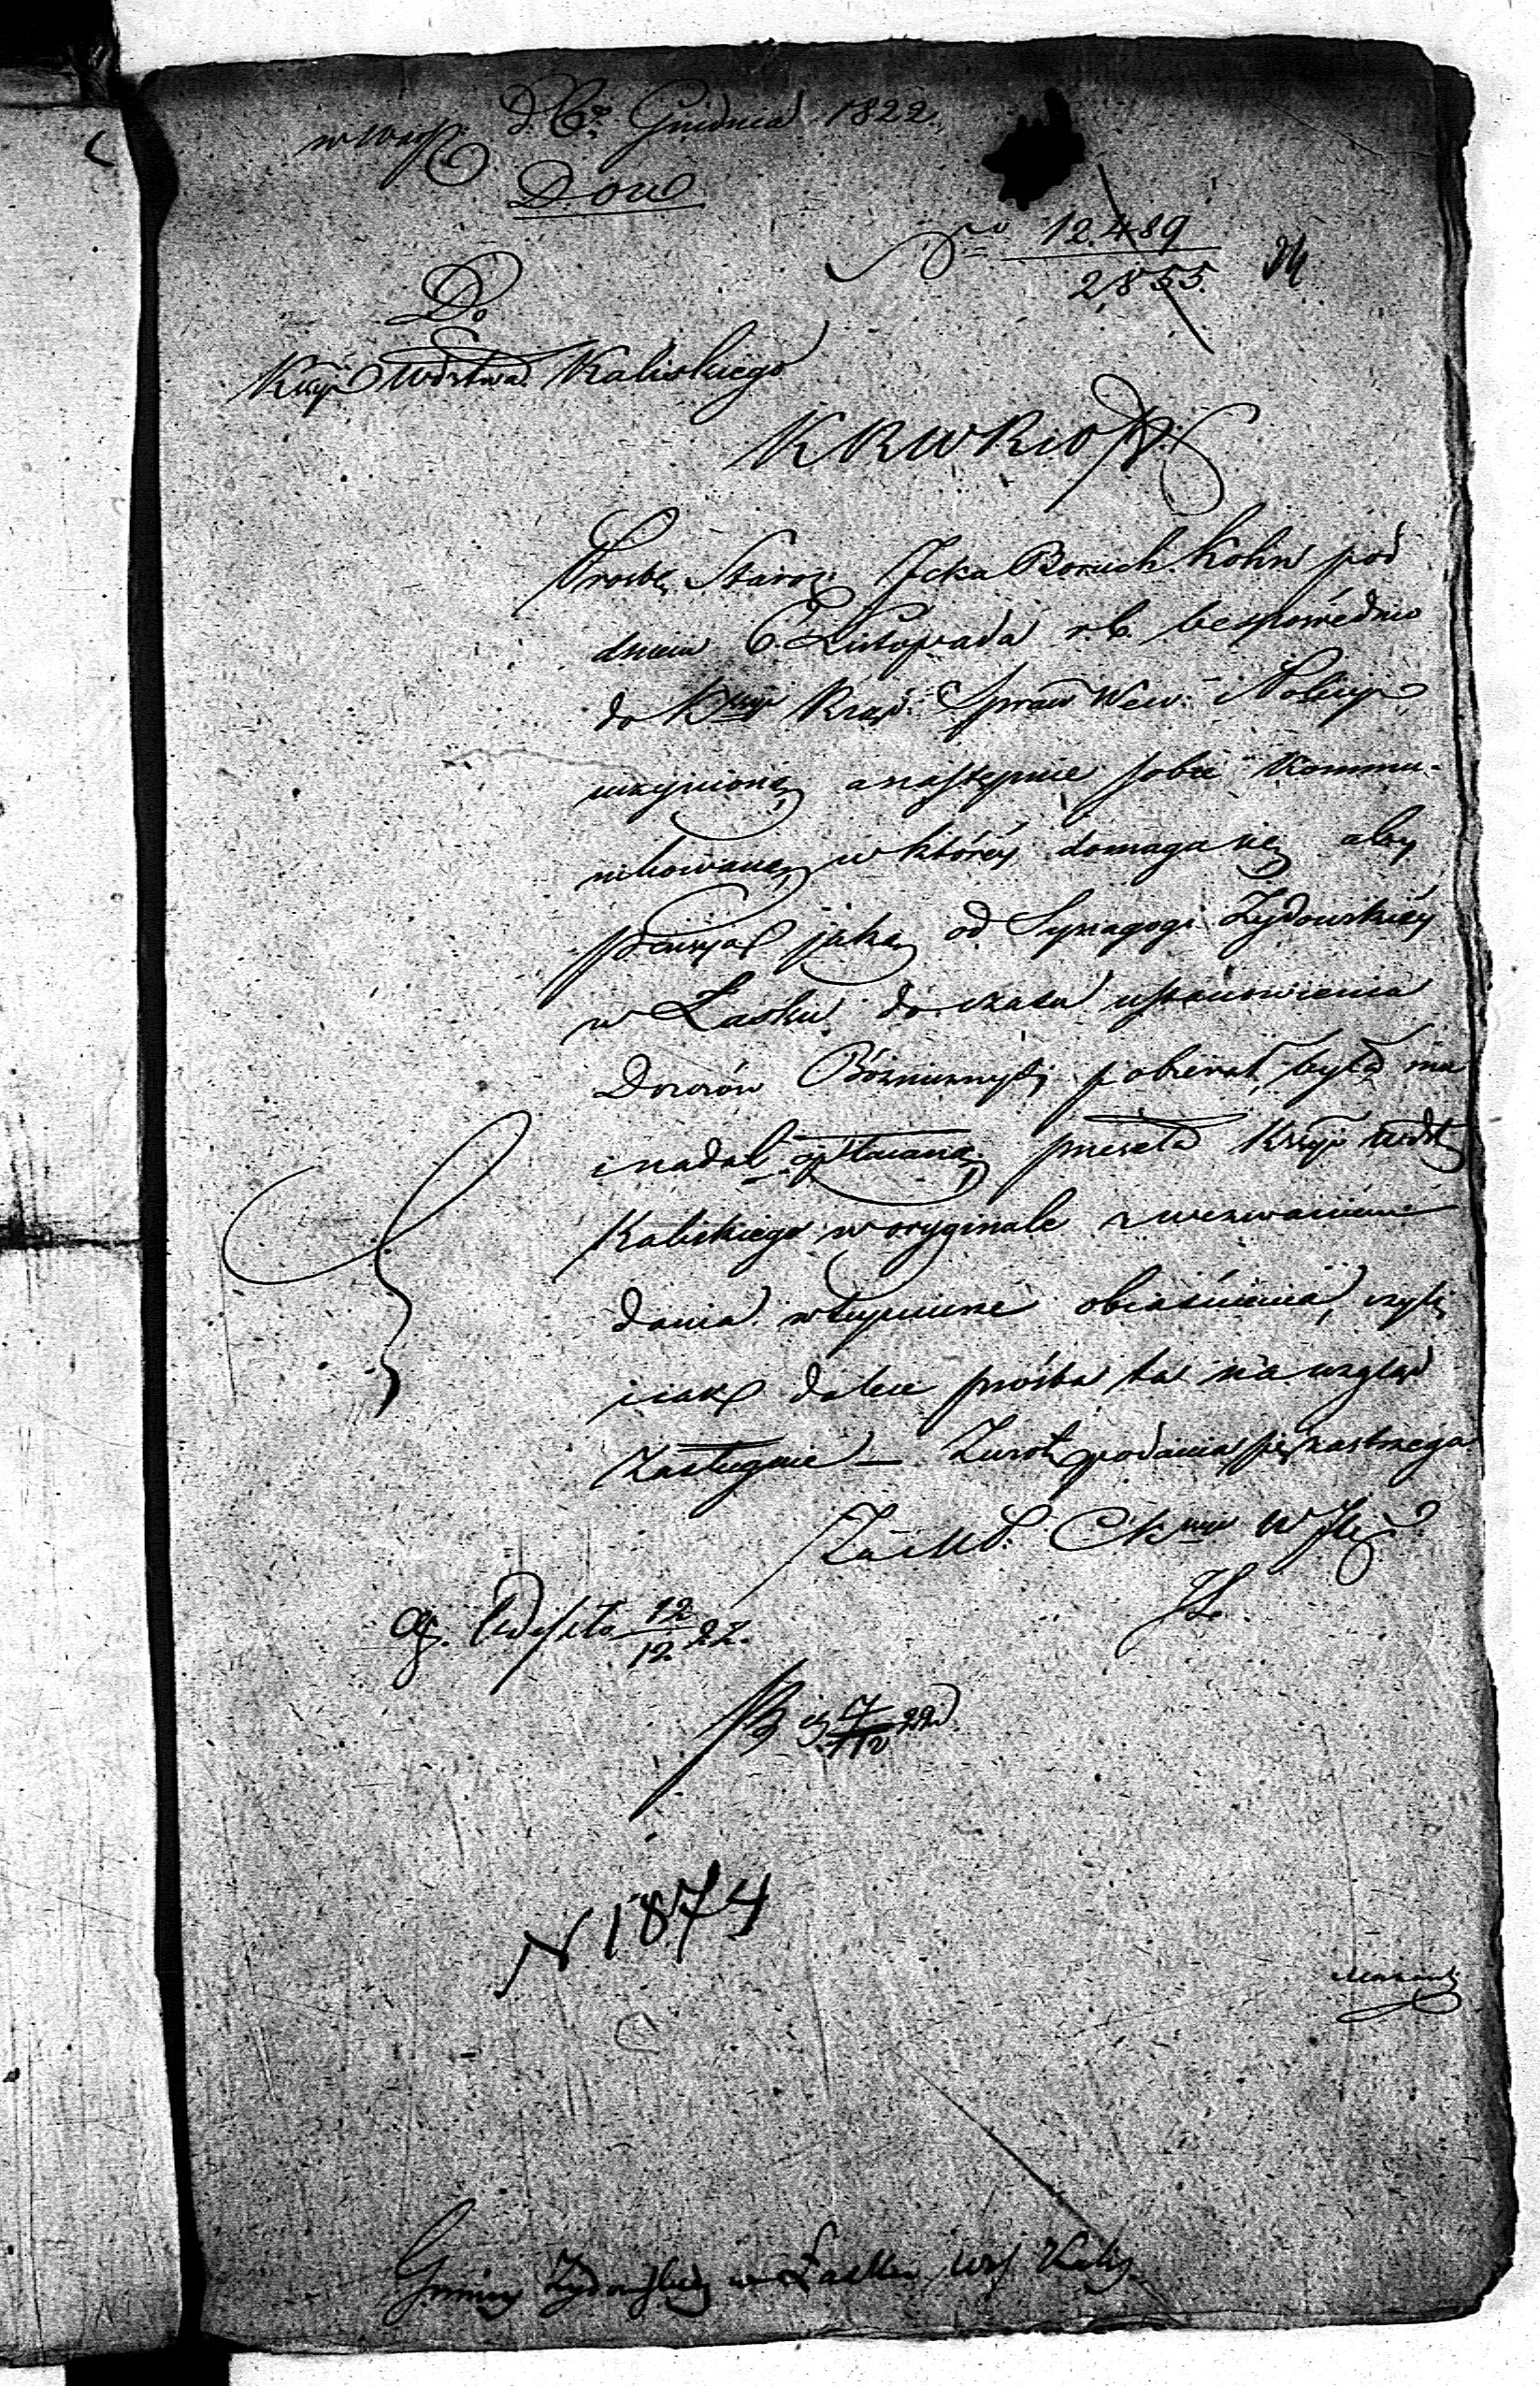 w Warsz. d. 6º Grudnia 1822.
Dou
Nº 12.489
2,855.
Do
Kssyi Wdztwa Kaliskiego
K R W R i O P.
Prosbę Staroz. Icka Boruch Kohn pod
dniem 6. Listopada r. b. bezpośrednio
do Kssyi Rząd: Spraw Wew: i Policyi
uczynioną a następnie sobie Kommu-
nikowaną, w któréy domaga się aby
pensya jaką od Synagogi Żydowskiéy
w Łasku do czasu ustanowienia
Dozorów Bóżniczych pobierał, była mu
i nadal opłacaną przesela Kssyi Wdzt
Kaliskiego w oryginale z wezwaniem
dania w tey mierze obiaśnienia, czyli
i iak dalece prośba ta na wzgląd
zasługuie — Zwrot podania się zastrzega.
Ex. Wyszło 12/12 22.
7/12 22
N 1874
Gminy Żydowskiey w Łasku Wdz. Kalis.